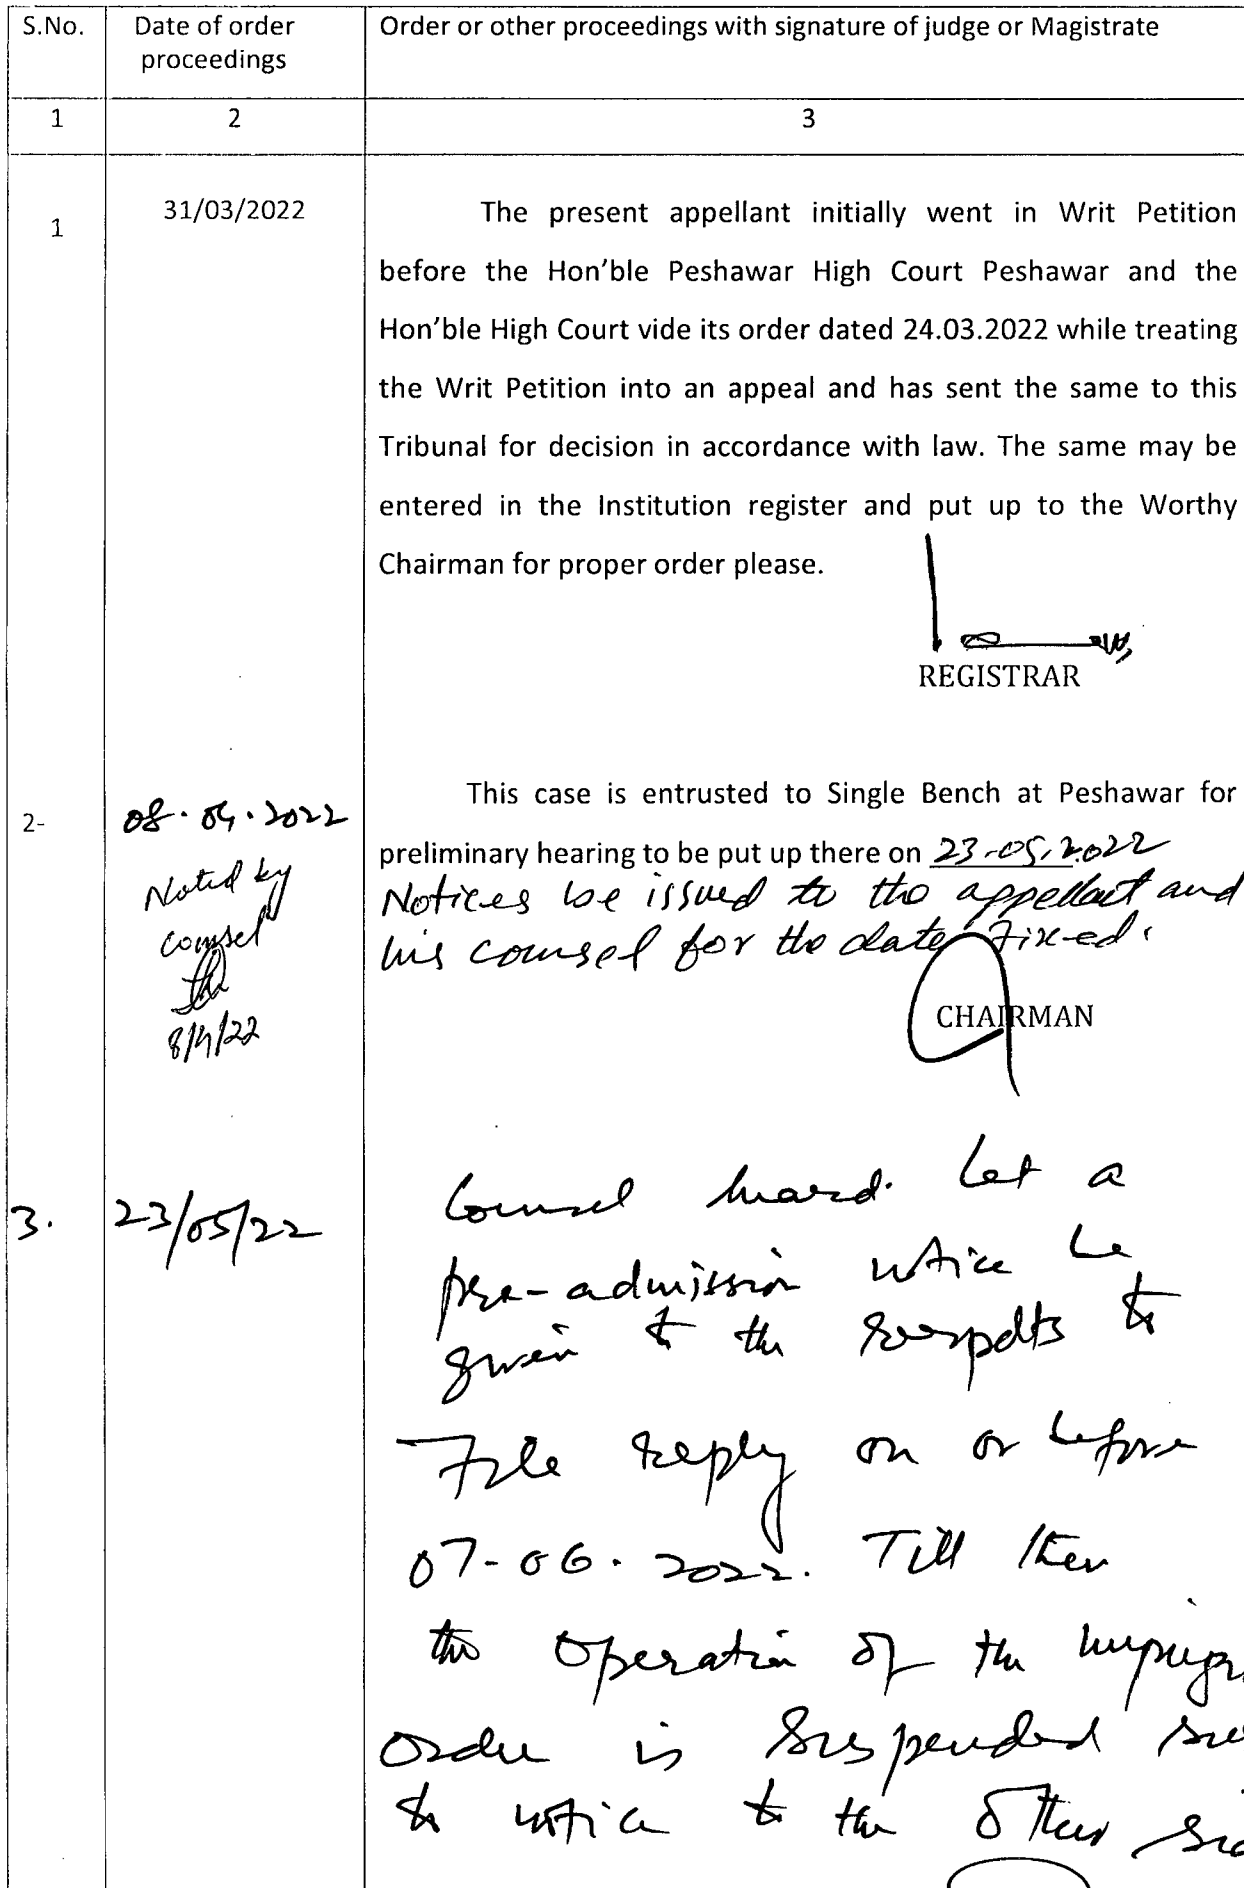 S.No.
Date of order
proceedings
Order or other proceedings with signature of judge or Magistrate
1
2
3
1
31/03/2022
The present appellant initially went in Writ Petition
before the Hon'ble Peshawar High Court Peshawar and the
Hon'ble High Court vide its order dated 24.03.2022 while treating
the Writ Petition into an appeal and has sent the same to this
Tribunal for decision in accordance with law. The same may be
entered in the Institution register and put up to the Worthy
Chairman for proper order please.
REGISTRAR
2-
08.04.2022
Noted by
counsel
8/4/22
This case is entrusted to Single Bench at Peshawar for
preliminary hearing to be put up there on 23-05-2022
Notices be issued to the appellant and
his counsel for the date fixed.
CHAIRMAN
3.
23/05/22
Counsel heard. Let a
pre-admission notice be
given to the respdts to
File reply on or before
07-06-2022. Till then
the operation of the
order is suspended
to notice to the other